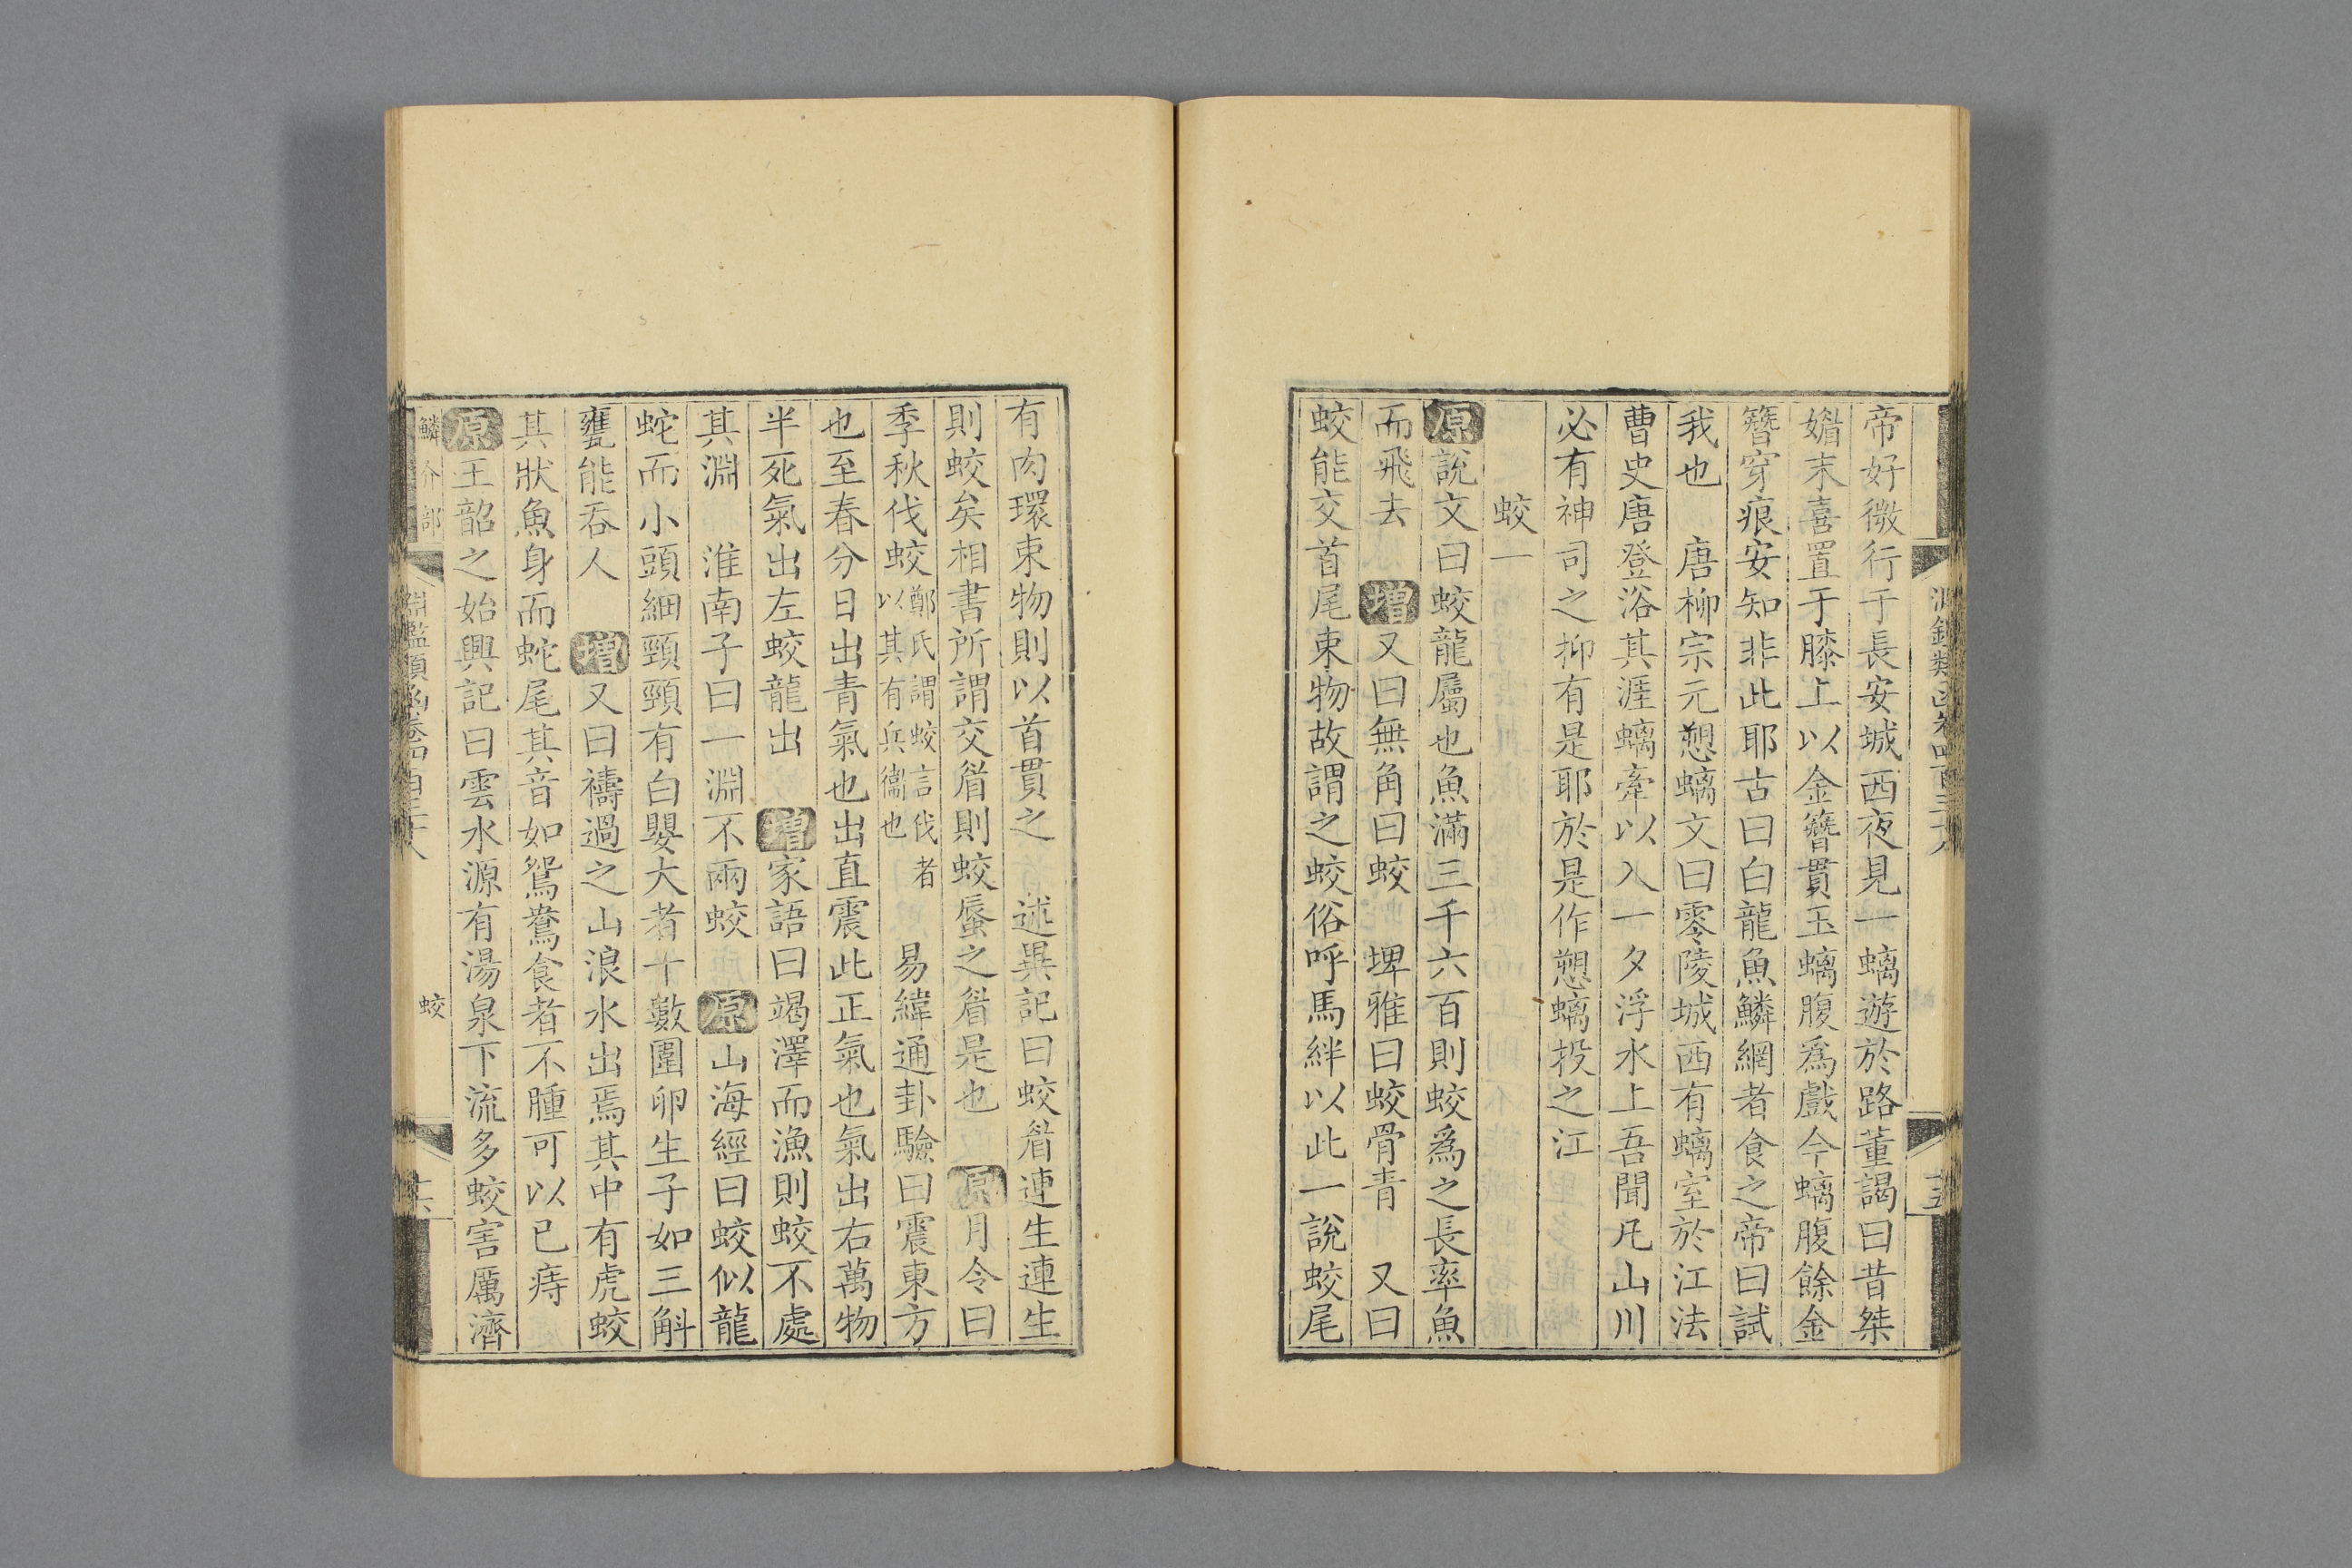 淵鑑類函卷四百三十八
十五
帝好微行于長安城西夜見一螭遊於路董謁曰昔桀
媚末喜置于膝上以金簪貫玉螭腹為戲今螭腹餘金
簪穿痕安知非此耶古曰白龍魚鱗網者食之帝曰試
我也 唐柳宗元愬螭文曰零陵城西有螭室於江法
曹史唐登浴其涯螭牽以入一夕浮水上吾聞凡山川
必有神司之抑有是耶於是作愬螭投之江
蛟一
原說文曰蛟龍屬也魚滿三千六百則蛟爲之長率魚
而飛去 增又曰無角曰蛟 埤雅曰蛟骨青 又曰
蛟能交首尾束物故謂之蛟俗呼馬絆以此一說蛟尾
有肉環束物則以首貫之 述異記曰蛟眉連生連生
則蛟矣相書所謂交眉則蛟蜃之眉是也 原月令曰
季秋伐蛟鄭氏謂蛟言伐者以其有兵衞也 易緯通卦驗曰震東方
也至春分日出青氣也出直震此正氣也氣出右萬物
半死氣出左蛟龍出 增家語曰竭澤而漁則蛟不處
其淵 淮南子曰一淵不兩蛟 原山海經曰蛟似龍
蛇而小頭細頸頸有白嬰大者十數圍卵生子如三斛
甕能吞人 增又曰禱過之山浪水出焉其中有虎蛟
其狀魚身而蛇尾其音如鴛鴦食者不腫可以已痔
原王韶之始興記曰雲水源有湯泉下流多蛟害厲濟
鱗介部
淵鑑類函卷四百三十八
蛟
十六